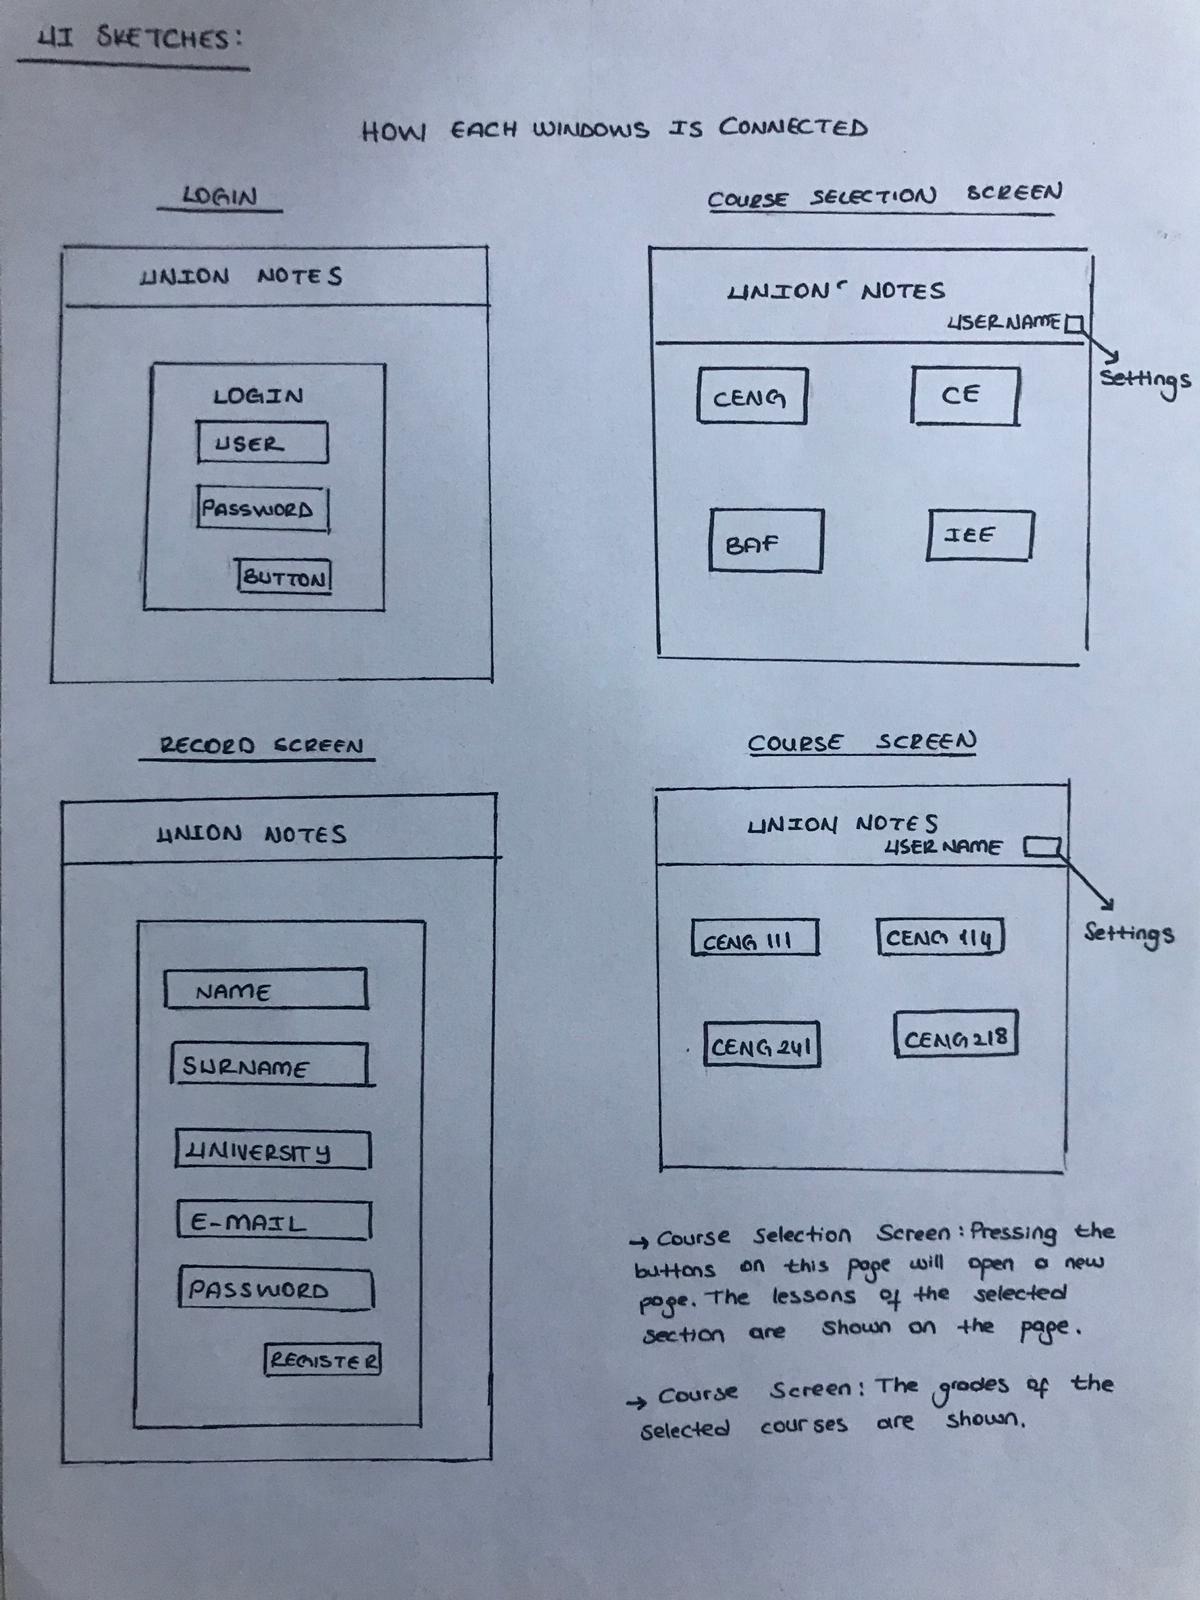 UI SKETCHES:
HOW EACH WINDOWS IS CONNECTED
LOGIN
UNION NOTES
LOGIN
USER
PASSWORD
BUTTON
COURSE SELECTION SCREEN
UNION NOTES
USERNAME
Settings
CENG
CE
BAF
IEE
RECORD SCREEN
UNION NOTES
NAME
SURNAME
UNIVERSITY
E-MAIL
PASSWORD
REGISTER
COURSE SCREEN
UNION NOTES
USERNAME
Settings
CENG 111
CENG 114
CENG 241
CENG 218
→ Course Selection Screen: Pressing the
buttons on this page will open a new
page. The lessons of the selected
section are shown on the page.
→ Course Screen: The grades of the
selected courses are shown.